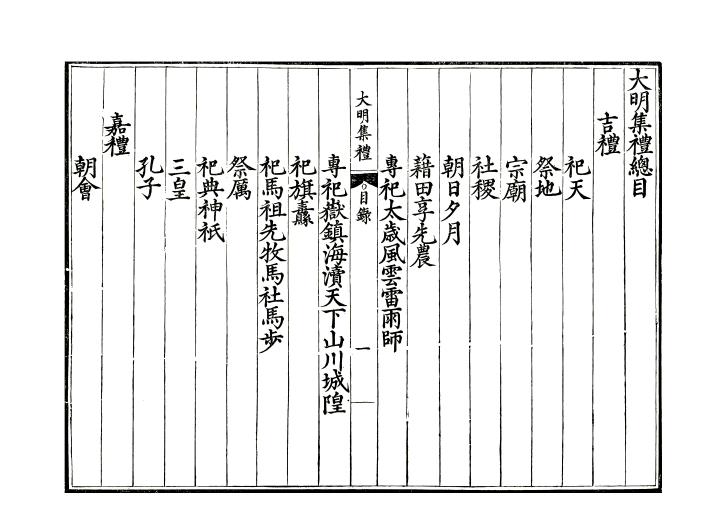 大明集禮總目
吉禮
祀天
祭地
宗廟
社稷
朝日夕月
藉田享先農
專祀太歲風雲雷雨師
大明集禮 目錄 一
專祀嶽鎮海瀆天下山川城隍
祀旗纛
祀馬祖先牧馬社馬步
祭厲
祀典神祇
三皇
孔子
嘉禮
朝會